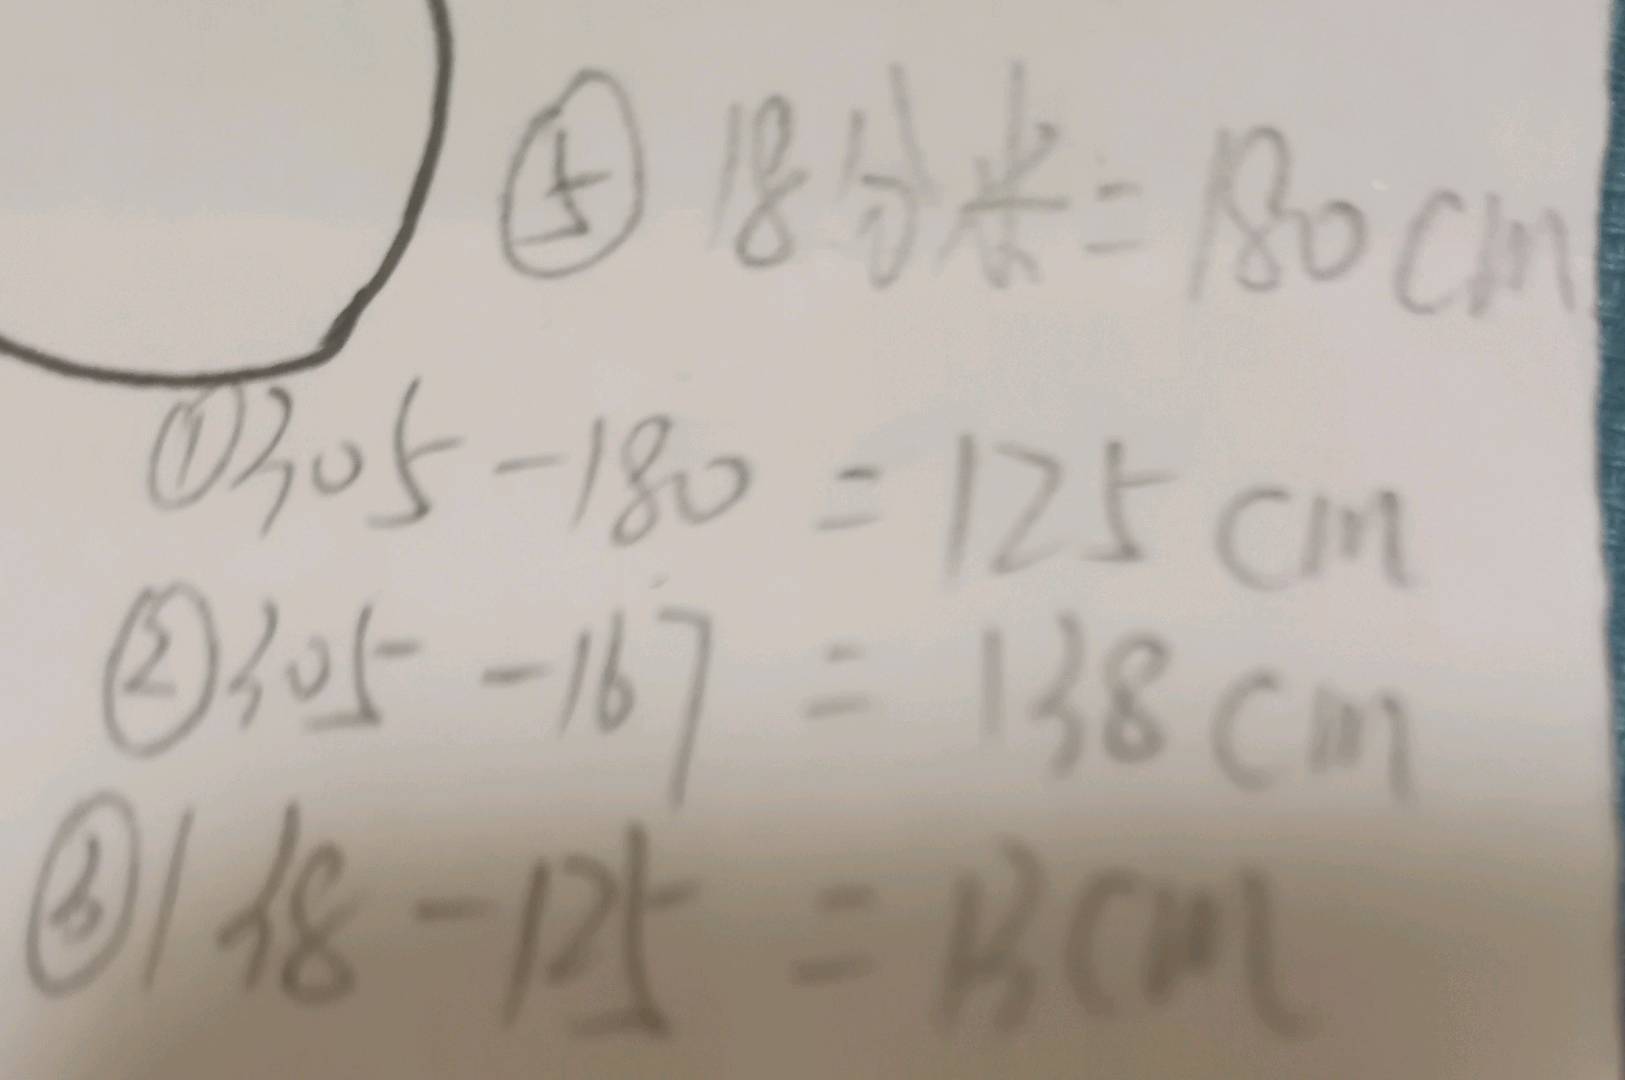 ⑤ 18分米=180cm
①305-180=125cm
②305-167=138cm
③138-125=13cm